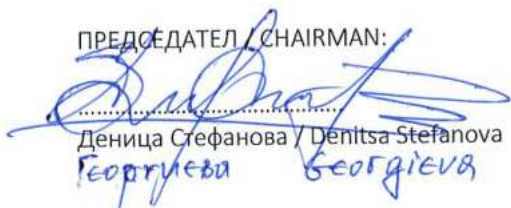 ПРЕДСЕДАТЕЛ / CHAIRMAN:
Деница Стефанова / Denitsa Stefanova
Георгиева Georgieva